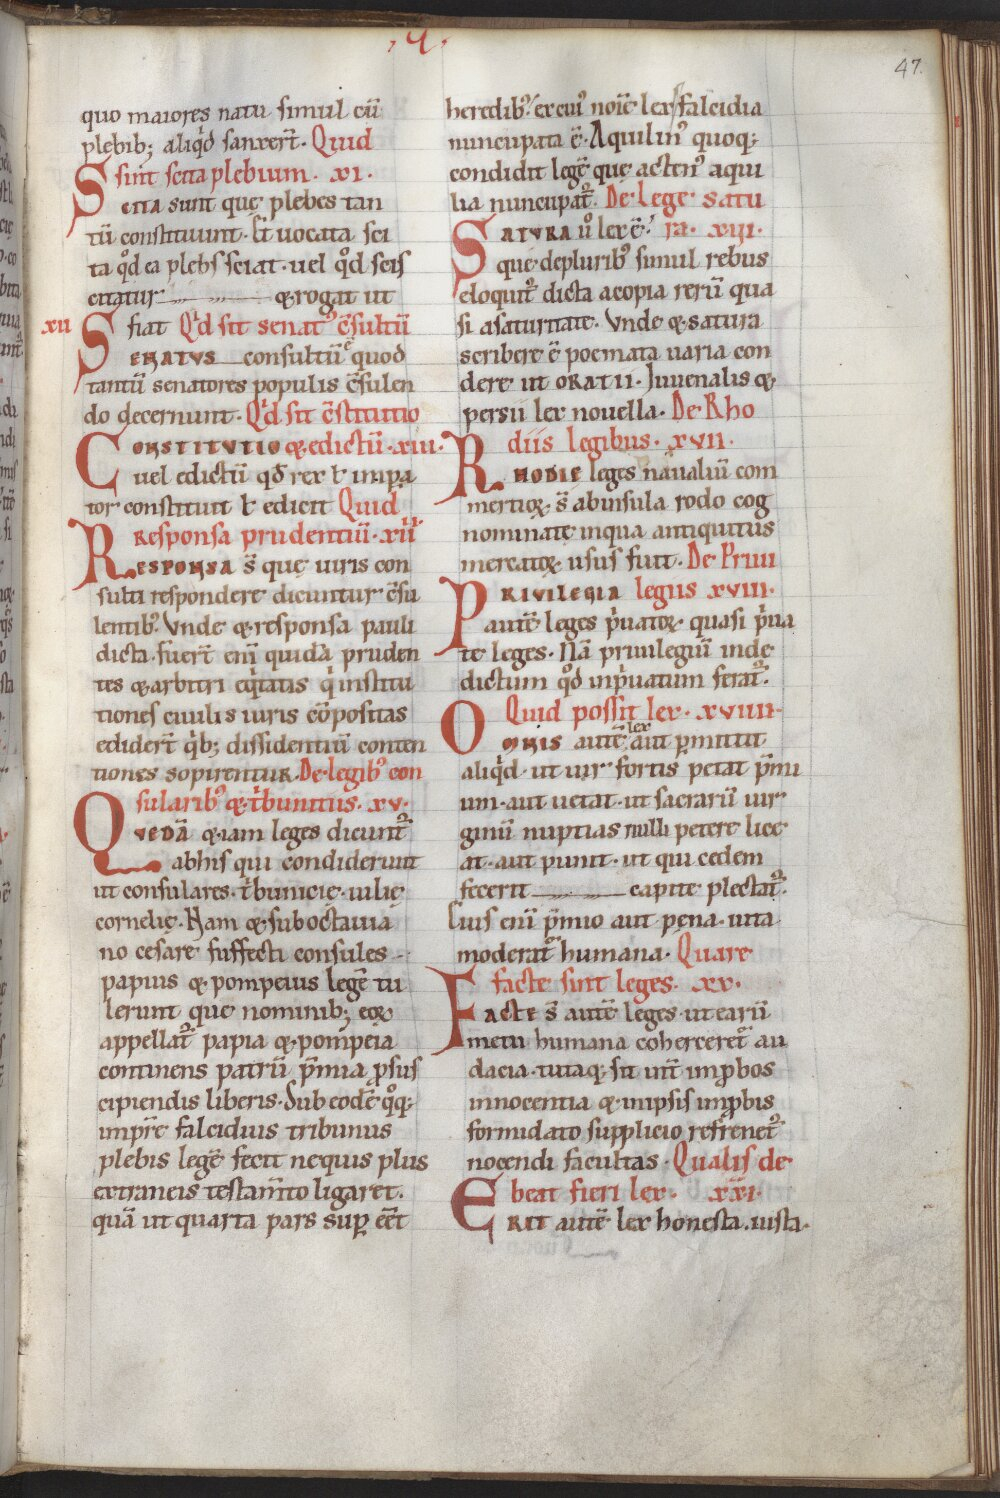 .V.
47.
quo maiores natu simul cū
plebib; aliq̇d sanxer̄t. Quid
sint scita plebium. xi.
Scita sunt quę plebes tan
tū constituunt. Et uocata sci
ta q̇d ea plebs sciat. uel q̇d scis
citatur & rogat ut
xii
fiat Q̇d sit senat᾽ c̄sultū
Senatus consultū ē quod
tantū senatores populis c̄sulen
do decernunt. Q̇d sit c̄stitutio
Constitutio & edictū. xiii.
uel edictū qđ rex ł impa
tor constituit ł edicit Quid
Responsa prudentiū. xiiii
Responsa s̄ quę uiris con
sulti respondere dicuntur c̄su
lentib᾽. Vnde & responsa pauli
dicta. fuer̄t eni̅ quidā pruden
tes & arbitri eq̇tatis q̇ institu
tiones ciuilis iuris cōpositas
edider̄t q̇b; dissidentiū conten
tiones sopirentur. De legib᾽ con
sularib᾽ & ṫbunitiis. xv.
Quedā & iam leges dicunt᾽
ab his qui condiderunt
ut consulares. ṫbunicię. iulię
cornelię. Nam & sub octauia
no cesare suffecti consules
papius & pompeius legē tu
lerunt quę nominib; eoꝝ
appellat᾽ papia & pompeia
continens patrū p̄mia ꝓsus
cipiendis liberis. Sub eodē q̊q;
imp̄re falcidius tribunus
plebis legē fecit nequis plus
extraneis testam̄to ligaret.
quā ut quarta pars suꝑ eēt
heredib᾽. ex cui᾽ noīe lex falcidia
nuncupata ē. Aquilin᾽ quoq;
condidit legē quę acten᾽ aqui
lia nuncupat᾽. De lege satu
ra. xvi.
Satura u̇ lex ē
que de plurib᾽ simul rebus
eloquit᾽ dicta a copia rerū qua
si a saturitate. Vnde & satura
scribere ē poemata uaria con
dere ut oratii. Iuuenalis &
persii lex nouella. De Rho
diis legibus. xvii.
Rhodie leges naualiū com
mertioꝝ. s̄ ab insula rodo cog
nominatę in qua antiquitus
mercatoꝝ usus fuit. De Priui
legiis xviii.
Priuilegia
autē leges ṗuatoꝝ. quasi ṗua
te leges. Nā priuilegiū inde
dictum q̇d in ṗuatum ferat᾽.
Quid possit lex. xviiii.
Omnis autē lex aut ꝑmittit
aliq̇d. ut uir fortis petat p̄mi
um. aut uetat. ut sacrarū uir
ginū nuptias nulli petere lice
at. aut punit. ut qui cedem
fecerit capite plectat᾽.
Euis eni̅ p̄mio aut pęna. uita
moderat᾽ humana. Quare
facte sint leges. xx.
Facte s̄ autē leges. ut earū
metu humana cohercerēt au
dacia. tutaq; sit int̄ inꝓbos
innocentia & in ipsis inꝓbis
formidato supplicio refrenet᾽
nocendi facultas. Qualis de
beat fieri lex. xxi.
Erit autē lex honesta. iusta.